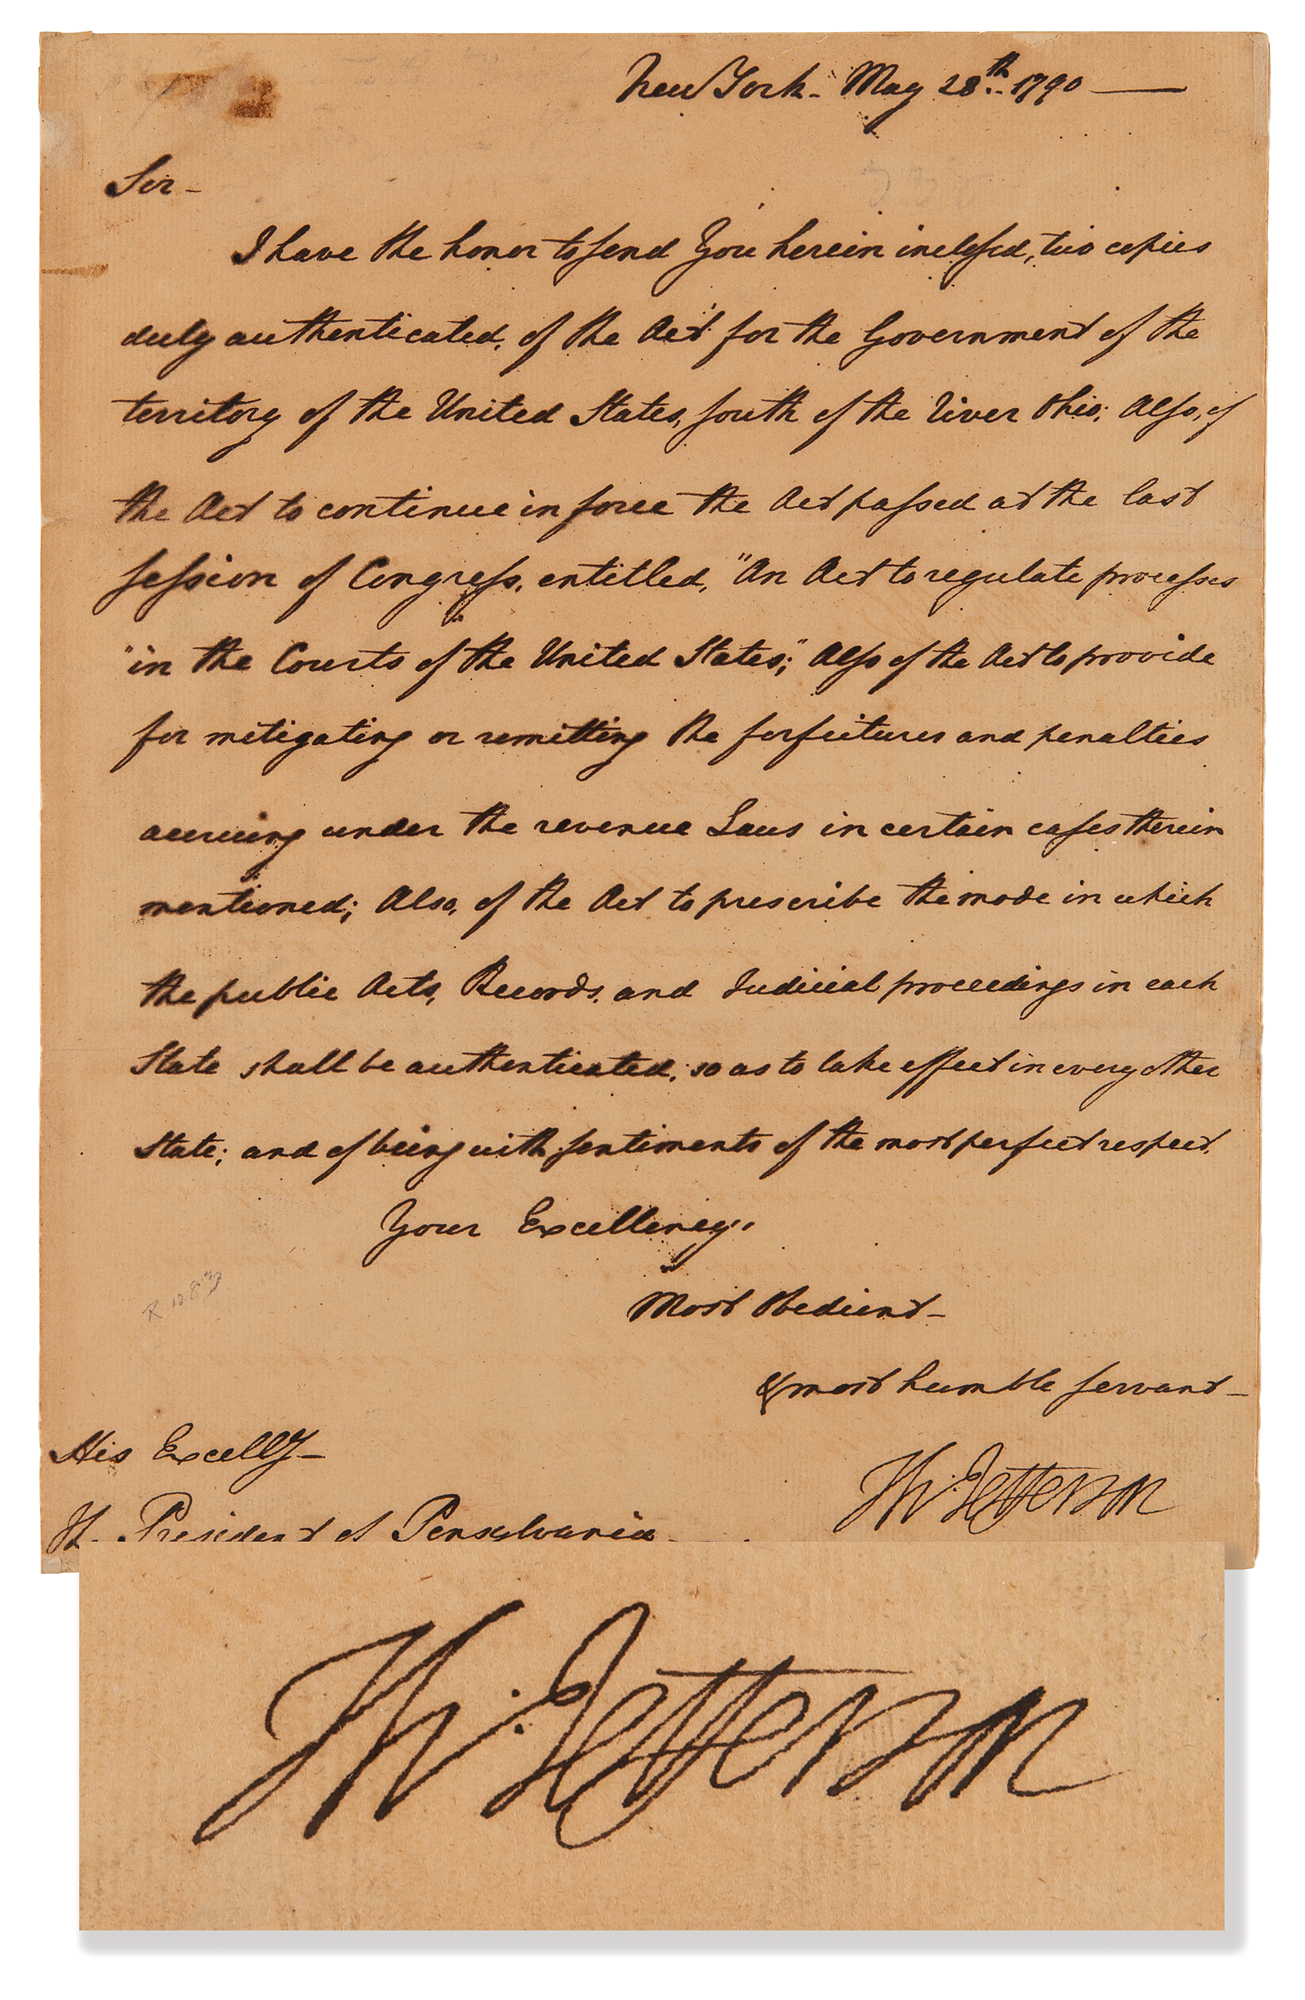 New York - May 28th. 1790 —
Sir -
I have the honor to send You herein inclosed, two copies
duly authenticated, of the Act for the Government of the
territory of the United States, south of the river Ohio; Also, of
the Act to continue in force the Act passed at the last
session of Congress, entitled, "An Act to regulate processes
"in the Courts of the United States;" Also of the Act to provide
for mitigating or remitting the forfeitures and penalties
accruing under the revenue Laws in certain cases therein
mentioned; Also, of the Act to prescribe the mode in which
the public Acts, Records, and Judicial proceedings in each
State shall be authenticated, so as to take effect in every other
State; and of being with sentiments of the most perfect respect.
Your Excellency,
Most Obedient -
& most humble servant -
His Excelly -
Th: Jefferson
President of Pensylvania
R 1283
Th: Jefferson